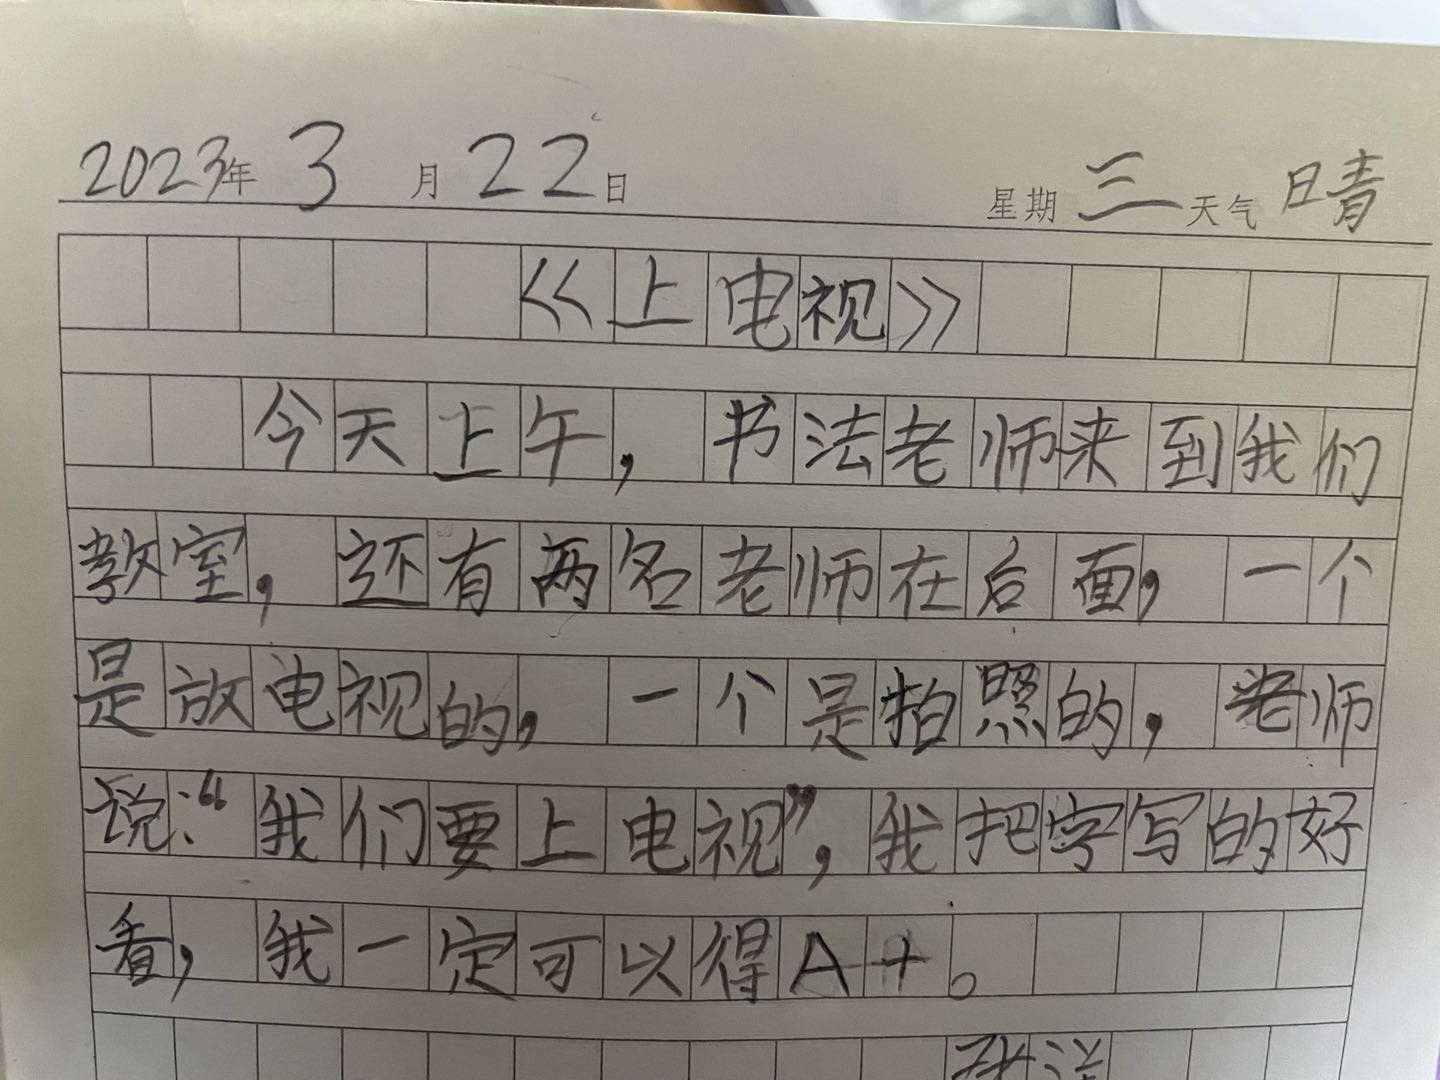 2023年 3月 22日 星期三 天气 晴
《上电视》
今天上午，书法老师来到我们
教室，还有两名老师在后面，一个
是放电视的，一个是拍照的，老师
说：“我们要上电视”，我把字写的好
看，我一定可以得A+。